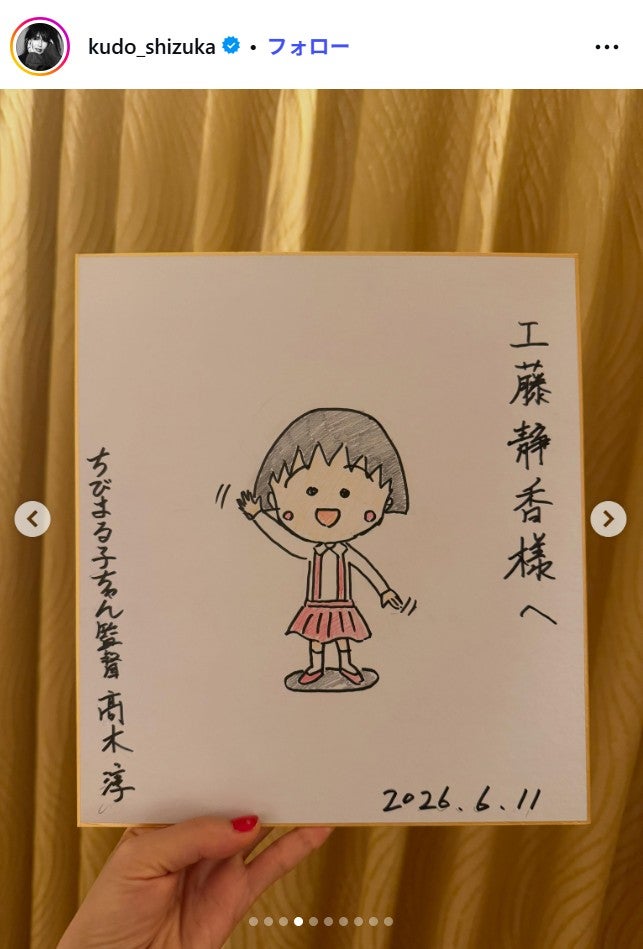 kudo_shizuka • フォロー
工藤静香様へ
ちびまる子ちゃん監督 髙木 淳
2026.6.11